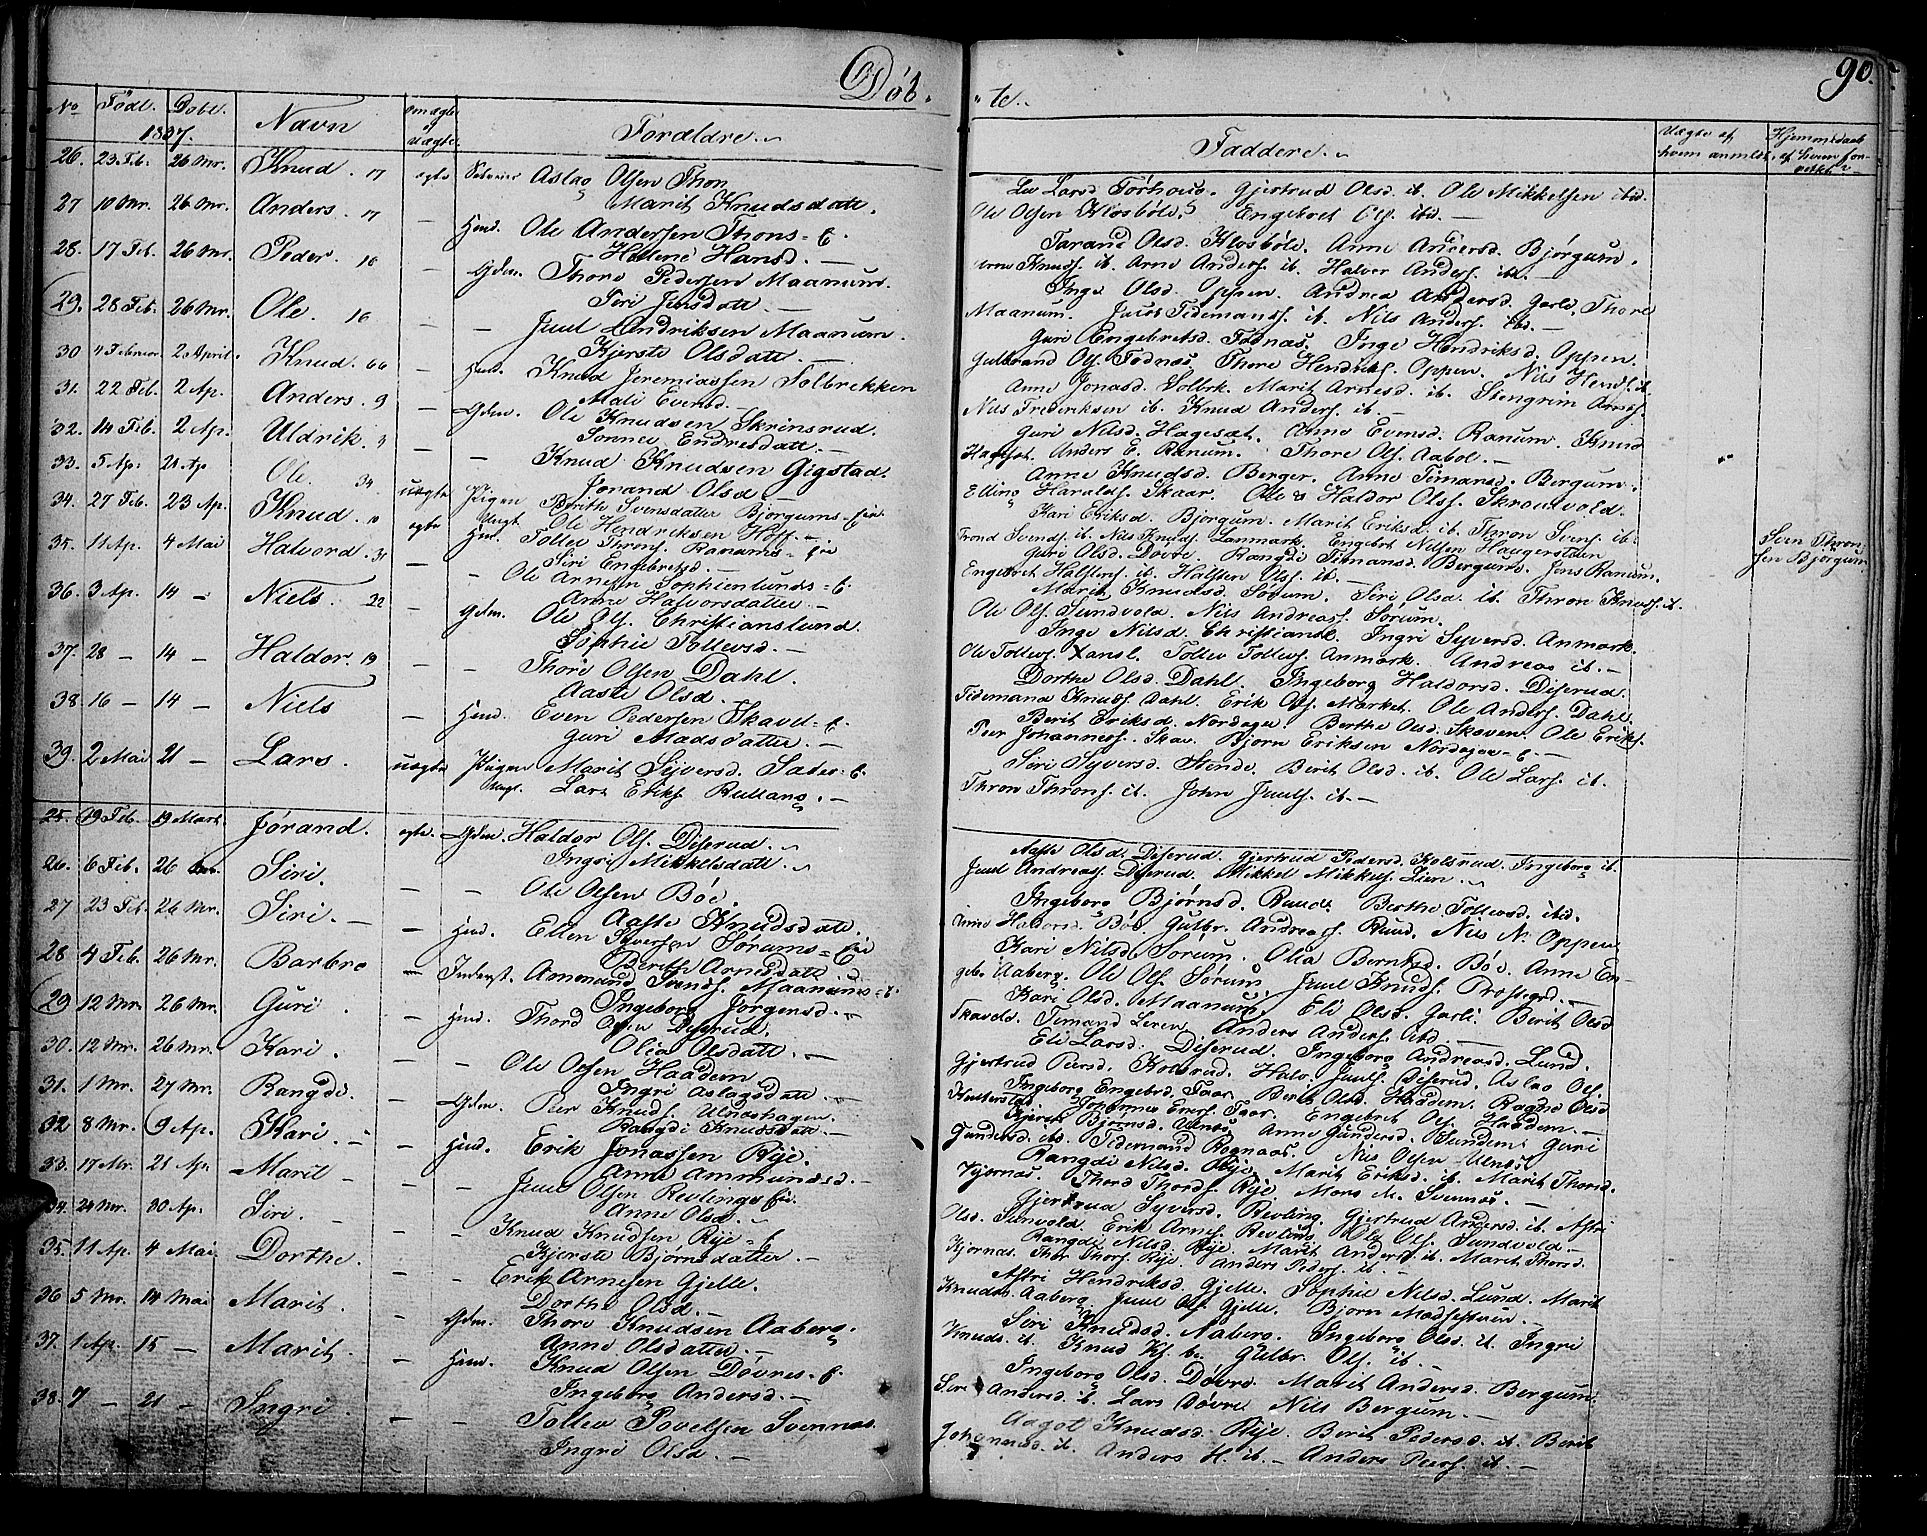 Döb-te.
90.
No Födt. Döbt. Navn om ægte ell. uægte. Forældre. Faddere.
1837.
26. 23 Feb. 26 Mr. Knud. 17 ægte Aslag Olsen Thon
Marit Knudsdatt.
Lars Törhoug. Gjertrud Olsd. ib. Ole Mikkelsen ibid.
Ole Olsen Klosböle, Engebret Ols. ibid. —
27 10 Mr. 26 Mr. Anders. 17 — Huusd. Ole Andersen Thons-E.
Hansd. —
Olsd. Klosböle. Anne Andersd. Björgum.
Knuds. ib. Arne Anders. ib. Halvor Anders. ib.
28. 17 Feb. 26 Mr. Peder. 16 — Gdm. Thore Pedersen Maanum.
Siri Jensdatt. —
Inge Olsd. Oppen. Andrea Andersd. Garli. Thore
Maanum. Jacob Tidemands. ib. Nils Anders. ibd. —
29. 28 Feb. 26 Mr. Ole. 16 — — Juul Hendriksen Maanum.
Kjersti Olsdatt. —
Guri Engebretsd. Fodnæs. Inge Hendriksd. Oppen.
Gulbrand Ols. Fodnæs. Thore Hendriks. Oppen. Nils Hends. ib.
30 4 Februar 2 April. Knud. 66 — Huusd. Knud Jeremiassen Solbrekken
Mali Evensd. —
Anne Jonasd. Solbrk. Marit Arnesd. ib. Stengrim Arnes.
Nils Frederiksen ib. Knud Anders. ib. —
31. 22 Feb. 2 Ap. Anders. 9 — Gdm. Ole Knudsen Skrinsrud.
Endresdatt. —
Guri Nilsd. Hagesæt. Anne Evensd. Ranum. Knud
Hagesæt. Anders E. Ranum. Thore Ols. Aabol. —
32. 14 Feb. 2 Ap. Uldrik. 3 — — Knud Knudsen Gigstad.
Jörand Olsd —
Anne Knudsd. Berger. Anne Timansd. Bergum.
Elling Haralds. Skaar. Ole & Haldor Olss. Skroudvold.
33. 5 Ap. 21 Ap Ole. 34. uægte Pigen Berith Svensdatter Björgums-Eie
Ungk. Ole Hendriksen Hoff —
Kari Eriksd. Björgum. Marit Eriksd. ib. Thron Svens. ib.
Trond Svends. ib. Nils Knuds. Lanmark. Engebret Nilsen Haugerstuen
Sven Thronsen Björgum
34. 27 Feb. 23 Ap. Knud. 10 ægte Huusd. Tollev Throns. Ranums-Eie
Siri Engebretsd. —
Guri Olsd. Dövre. Rangdi Timansd. Bergum. Jens Ranum.
Engebret Halstens. ib. Halsten Ols. ib. —
35. 11 Ap. 4 Mai Halvord. 31 — — Ole Arnesen Sophienlunds-E.
Anne Halvorsdatter —
Marit Knudsd. Sörum. Siri Olsd. ib. Thron Knuds. ib.
Ole Ols. Sundvold. Nils Andreass. Sörum.
36. 3 Ap. 14 — Niels. 22 — Gdm. Ole Ols. Christianslund.
Sophie Tollevsd. —
Inge Nilsd. Christiansl. Ingri Syversd. Anmark.
Ole Tollevs. Xansl. Tollev Tollevs. Anmark. Andreas ib. —
37. 28 — 14 — Haldor. 19 — — Thore Olsen Dahl.
Aaste Olsd. —
Dorthe Olsd. Dahl. Ingeborg Haldorsd. Diserud.
Tidemand Knuds. Dahl. Erik Ols. Market. Ole Anders. Dahl.
38. 16 — 14 — Niels — Huusd. Even Pedersen Skavd-E.
Guri Madsdatter. —
Berit Eriksd. Nordager. Berthe Olsd. Skaven. Ole Eriks.
Peer Johanness. Skav. Björn Eriksen Nordager-E. —
39. 2 Mai 21 — Lars. uægte Pigen Marit Sijversd. Sæter-E.
Ungk. Lars Eriks Rullang. —
Siri Syversd. Stende. Berit Olsd. ib. Ole Lars. ib.
Thron Throns. ib. John Juuls. ib. —
25. 19 Feb. 19 Mart. Jörand. ægte. Gdm. Haldor Ols. Diserud.
Ingri Mikkelsdatt.
Aaste Olsd. Diserud. Gjertrud Pedersd. Kolsrud. Ingeborg ib.
Juul Andreass. Diserud. Mikkel Mikkels. Lien.
26. 6 Feb. 26 Siri. — — Ole Olsen Böe.
Aaste Knudsdatt.
Ingeborg Björnsd. Ruud. Berthe Tollevsd. ibd.
Haldorsd. Böe. Gulbr. Andreass. Ruud. Nils N. Oppen
27 23 Feb. 26 Mr. Siri. — Huusd. Ellen Syversen Sörums-Eie
Berithe Arnesdatt
Kari Nilsd. Sörum. Olea Berntsd. Böe. Anne En-
gebr. Aaberg. Ole Ols. Sörum. Juul Knuds. Prestegrd. —
28 4 Feb. 26 Mr. Barbro — Inderst. Ammund Svends. Maanums-E.
Ingeborg Jörgensd. —
Kari Olsd. Maanum. Eli Olsd. Garli. Berit Olsd
Skavdd. Timand Leren. Anders Anders. ibd —
29 12 Mr. 26 Mr. Guri. — Huusd. Thord Olsen Diserud.
Olia Olsdatt. —
Eli Larsd. Diserud. Ingeborg Andreasd. Lund.
Gjertrud Peersd. Kolsrud. Halv. Juuls. Diserud. Aslag Ols.
30. 12 Mr. 26 Mr. Kari. — — Ole Olsen Haadem
Ingri Aslagsdatt. —
Ingeborg Engebrd. Faar. Berit Olsd. Haadem. Ragnd Olsd
Johannes Faar. Engebret Ols. Haadem. —
31. 1 Mr. 27 Mr. Rangdi. — Gdm. Peer Knuds. Ulnæshagen.
Rangdi Knudsdatt. —
Björnsd. Ulnæs. Anne Gundersd. Sundem. Guri
Gundersd. ibd. Tidemand Rognaas. Nils Olsen Ulnæs
32 8 Mr. 9 Ap. Kari. — Huusd. Erik Jonassen Rye.
Anne Ammundsd. —
Rangdi Nilsd. Rye. Marit Eriksd. ib. Marit Thorsd.
Kjörnæs. Thord Thords. Rye. Mons M. Svennæs. —
33. 17 Mr. 21 Ap. Marit — — — Juul Olsen Revlings Eie.
Anne Olsd. —
Gjertrud Syversd. Revling. Gjertrud Andersd. ib. Astri
Olsd. Sundvold. Erik Arnes. Revling Ole Ols. Sundvold. —
34. 24 Mr. 30 Ap. Siri. — — — Knud Knudsen Rye-E
Kjersti Björnsdatter —
Rangdi Nilsd. Rye. Marit Andersd. ib. Marit Thorsd.
Kjörnæs. Thor Thors. Rye. Anders Peders. ib —
35. 11 Ap. 4 Mai Dorthe. — — Erik Arnesen Gjelle.
Dorthe Olsd. —
Astri Hendriksd. Gjelle. Sophie Nilsd. Lund. Marit
Knudsd. Aaberg. Juul Ols. Gjelle. Björn —
36 5 Mr. 14 Mai Marit. — Gdm. Thore Knudsen Aaberg.
Anne Olsdatter —
Siri Knudsd. Aaberg. Ingeborg Olsd. ib. Ingri
Knudsd. ib. Knud Gulbr. Ols. ib. —
37. 1 Ap. 15 — Marit. — Huusd. Knud Olsen Dövres-E.
Ingeborg Andersd. —
Ingeborg Olsd. Dövre. Marit Andersd. Bergum.
Siri Andersd. ib. Lars Dövre Nils Bergum. —
38. 7 — 21 — Ingri. — — Tollev Povelsen Svennæs.
Ingri Olsd. —
Aagot Knudsd. Rye. Berit Pedersd. ib. Berit
Johannesd. ib. Anders H. ib. — Anders Peers. ib. —